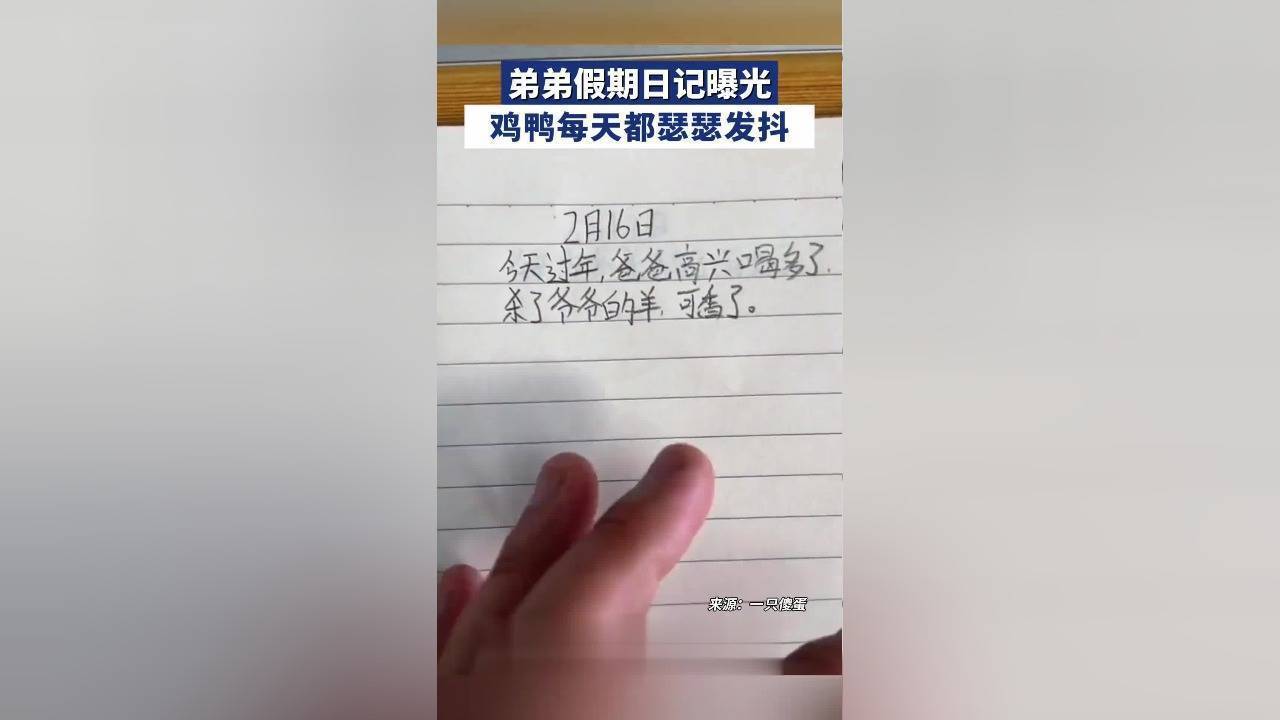 弟弟假期日记曝光
鸡鸭每天都瑟瑟发抖
2月16日
今天过年,爸爸高兴喝多了.
杀了爷爷的羊,可香了。
来源：一只傻蛋